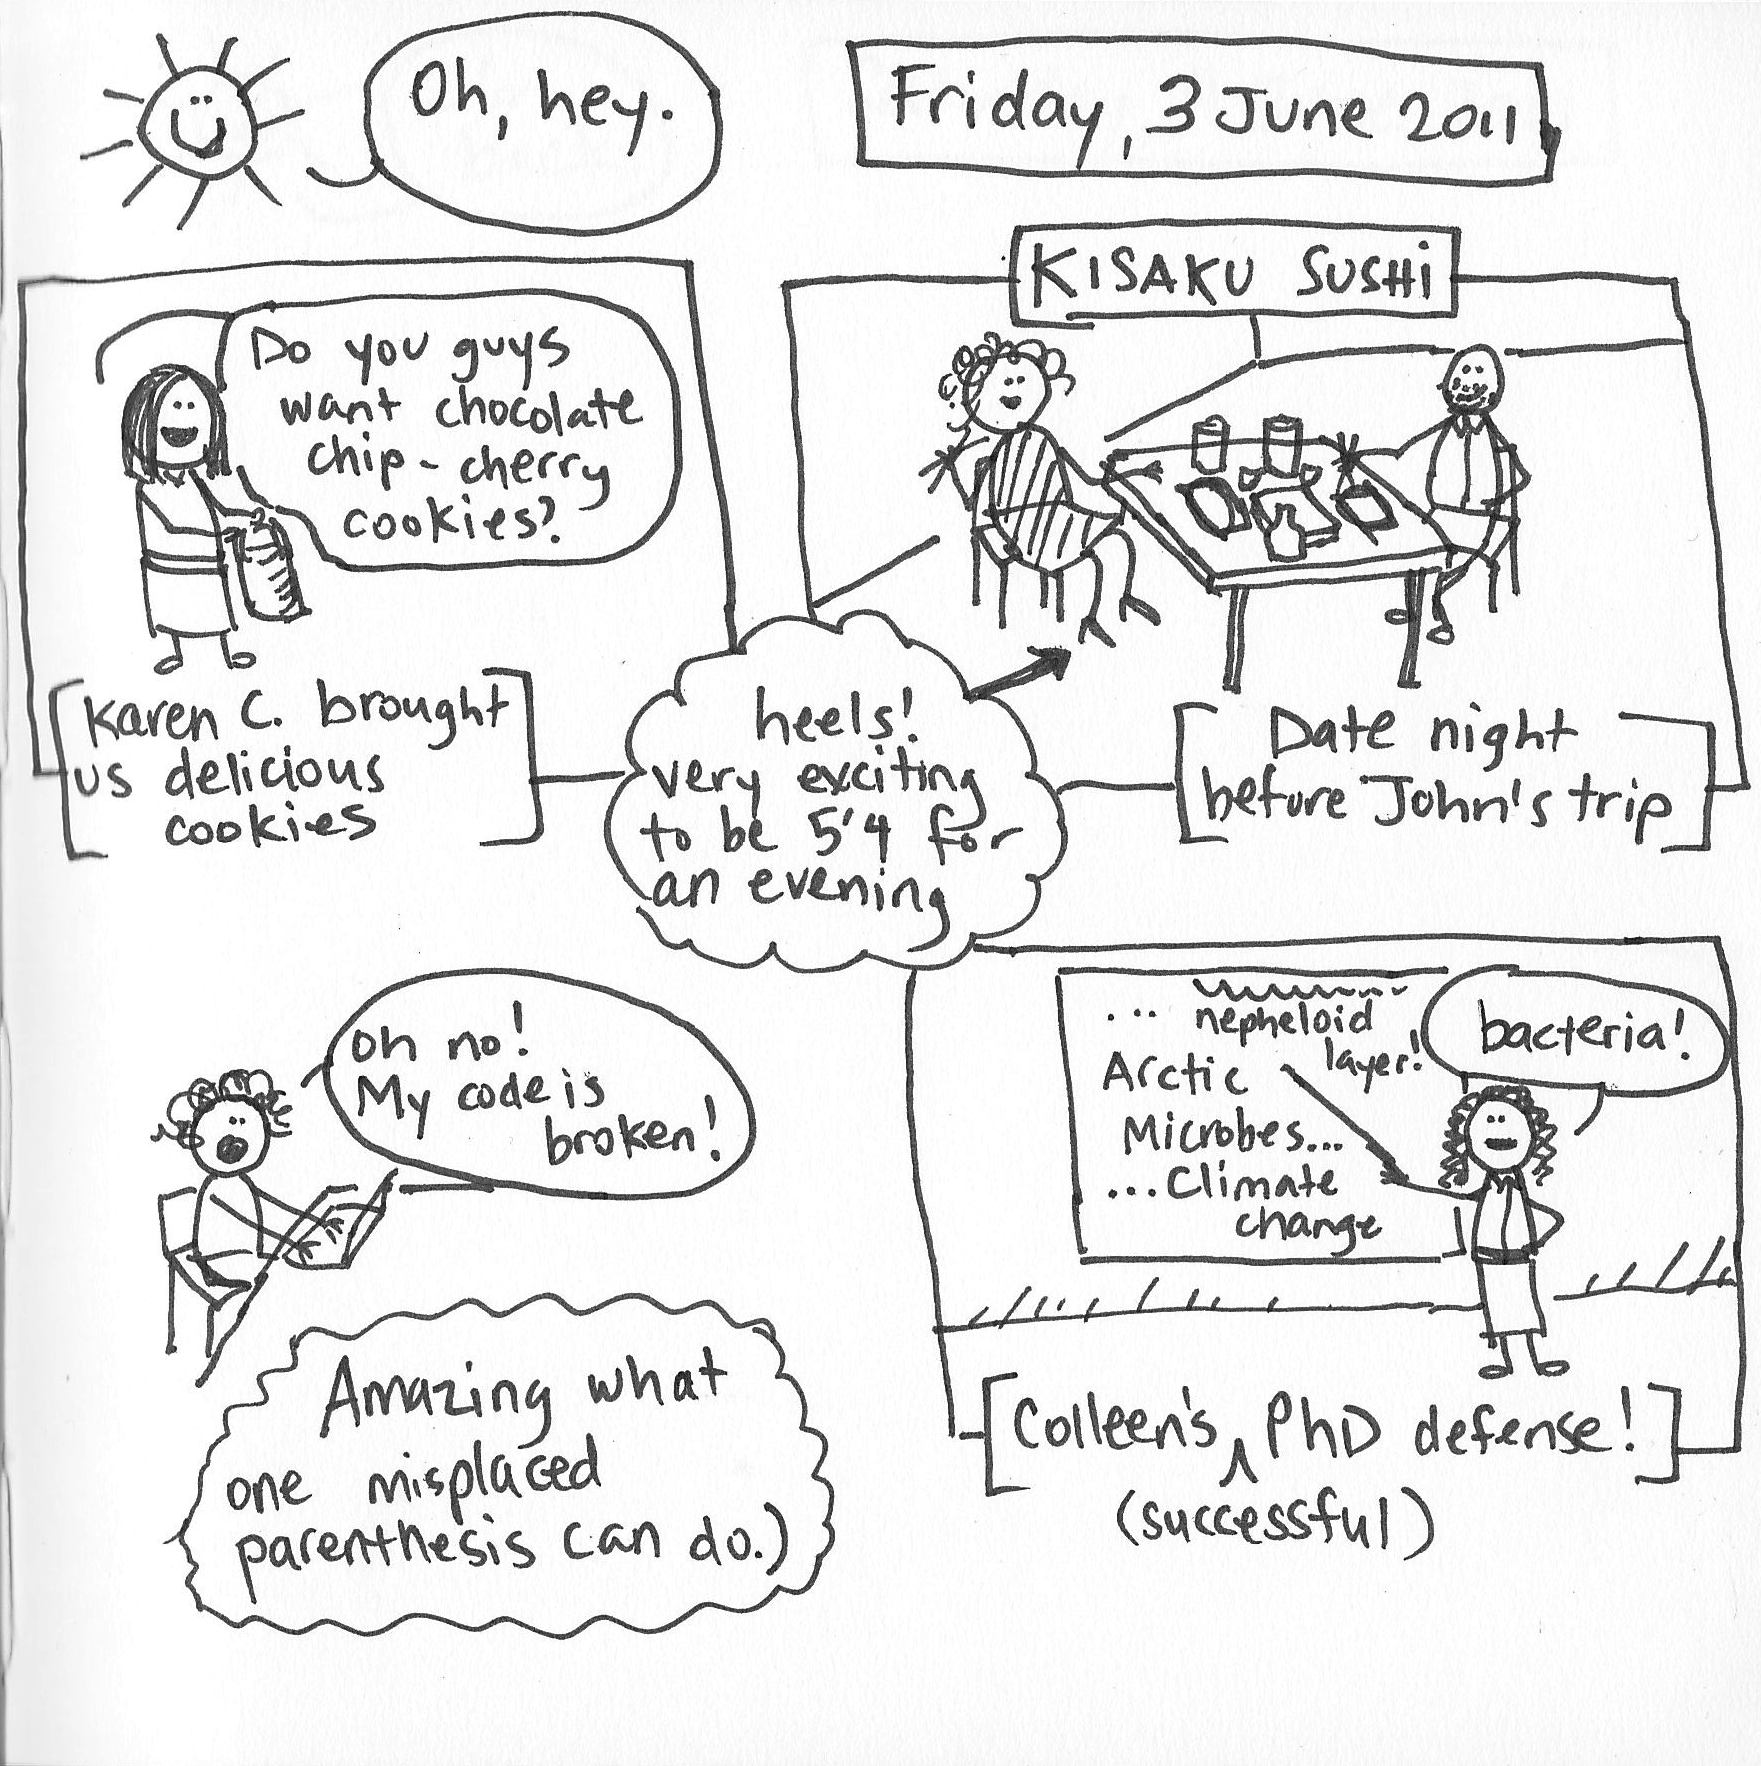 Oh, hey.
Friday, 3 June 2011
Do you guys
want chocolate
chip-cherry
cookies?
Karen C. brought
us delicious
cookies
KISAKU SUSHI
heels!
very exciting
to be 5'4 for
an evening
Date night
before John's trip
oh no!
My code is
broken!
Amazing what
one misplaced
parenthesis can do.)
... nepheloid
layer!
Arctic
Microbes...
...Climate
change
bacteria!
Colleen's PhD defense!
(successful)